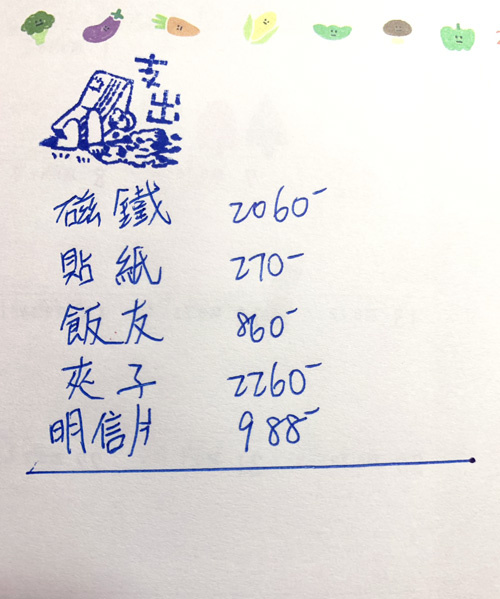 支出
磁鐵 2060-
貼紙 270-
飯友 860-
夾子 2260-
明信片 988-